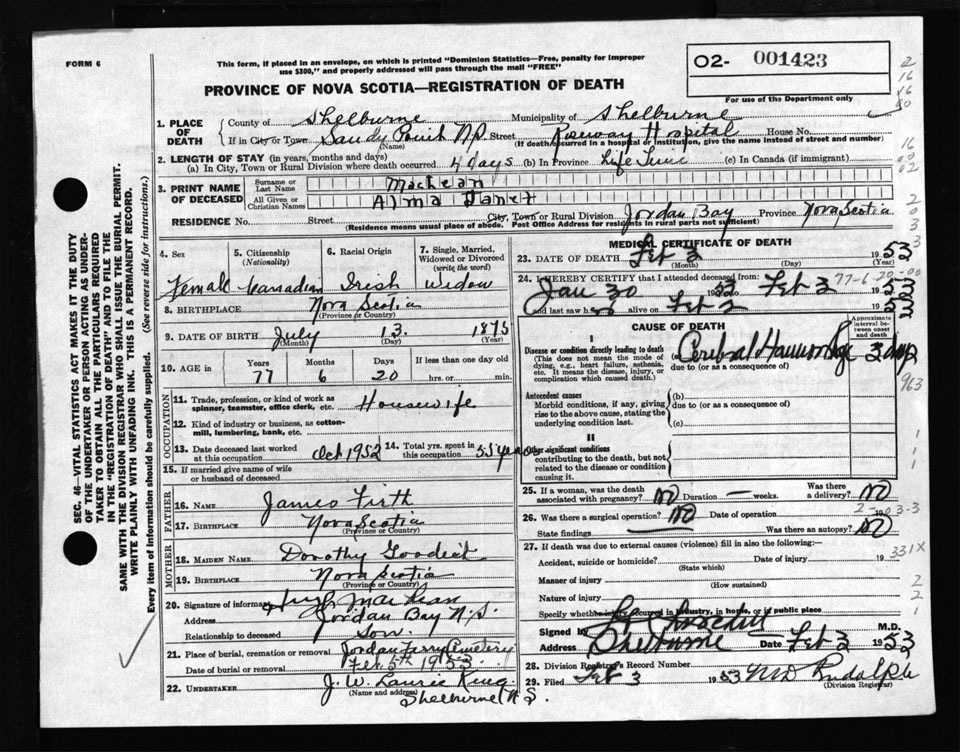 FORM 6
This form, if placed in an envelope, on which is printed "Dominion Statistics—Free, penalty for improper
use $300," and properly addressed will pass through the mail "FREE"
O2- 001423
For use of the Department only
PROVINCE OF NOVA SCOTIA—REGISTRATION OF DEATH
1. PLACE OF DEATH
County of Shelburne Municipality of Shelburne
If in City or Town Sandy Point N.S. Street Roseway Hospital House No.
(Name) (If death occurred in a hospital or institution, give the name instead of street and number)
2. LENGTH OF STAY (in years, months and days)
(a) In City, Town or Rural Division where death occurred 4 days (b) In Province Life Time (c) In Canada (if immigrant)
3. PRINT NAME OF DECEASED
Surname or Last Name MacLean
All Given or Christian Names Alma Janet
RESIDENCE No. Street City, Town or Rural Division Jordan Bay Province Nova Scotia
(Residence means usual place of abode. Post Office Address for residents in rural parts not sufficient)
4. Sex
Female
5. Citizenship (Nationality)
Canadian
6. Racial Origin
Irish
7. Single, Married, Widowed or Divorced (write the word)
Widow
8. BIRTHPLACE Nova Scotia
(Province or Country)
9. DATE OF BIRTH July 13 1875
(Month) (Day) (Year)
10. AGE in Years Months Days If less than one day old
77 6 20 hrs. or min.
OCCUPATION
11. Trade, profession, or kind of work as spinner, teamster, office clerk, etc. Housewife
12. Kind of industry or business, as cotton-mill, lumbering, bank, etc.
13. Date deceased last worked at this occupation Oct 1952 14. Total yrs. spent in this occupation 55 years
15. If married give name of wife or husband of deceased
FATHER
16. NAME James Firth
17. BIRTHPLACE Nova Scotia
(Province or Country)
MOTHER
18. MAIDEN NAME Dorothy Goodick
19. BIRTHPLACE Nova Scotia
(Province or Country)
20. Signature of informant Hugh MacLean
Address Jordan Bay N.S.
Relationship to deceased Son.
21. Place of burial, cremation or removal Jordan Ferry Cemetery
Date of burial or removal Feb 5th 1953
22. UNDERTAKER J. W. Laurie King
(Name and address) Shelburne N.S.
MEDICAL CERTIFICATE OF DEATH
23. DATE OF DEATH Feb 3 1953
(Month) (Day) (Year)
24. I HEREBY CERTIFY that I attended deceased from:
Jan 30 1953 to Feb 3 1953
and last saw h alive on Feb 3 1953
77-6-20-00
CAUSE OF DEATH
Approximate interval between onset and death
I
Disease or condition directly leading to death
(This does not mean the mode of dying, e.g., heart failure, asthenia, etc. It means the disease, injury, or complication which caused death)
(a) Cerebral Haemorrhage 3 days
due to (or as a consequence of)
Antecedent causes
Morbid conditions, if any, giving rise to the above cause, stating the underlying condition last.
(b)
due to (or as a consequence of)
(c)
II
Other significant conditions
contributing to the death, but not related to the disease or condition causing it.
25. If a woman, was the death associated with pregnancy? NO Duration — weeks. Was there a delivery? NO
26. Was there a surgical operation? NO Date of operation
State findings Was there an autopsy? NO
27. If death was due to external causes (violence) fill in also the following:
Accident, suicide or homicide? Date of injury 19
(State which)
331X
Manner of injury
(How sustained)
Nature of injury
Specify whether injury occurred in industry, in home, or in public place
Signed by M.D.
Address Shelburne Date Feb 3 1953
28. Division Registrar's Record Number
29. Filed Feb 3 1953 Rudolph
(Division Registrar)
SEC. 46—VITAL STATISTICS ACT MAKES IT THE DUTY
OF THE UNDERTAKER OR PERSON ACTING AS UNDER-
TAKER TO OBTAIN ALL THE PARTICULARS REQUIRED
IN THE "REGISTRATION OF DEATH" AND TO FILE THE
SAME WITH THE DIVISION REGISTRAR WHO SHALL ISSUE THE BURIAL PERMIT.
WRITE PLAINLY WITH UNFADING INK. THIS IS A PERMANENT RECORD.
Every item of information should be carefully supplied. (See reverse side for instructions.)